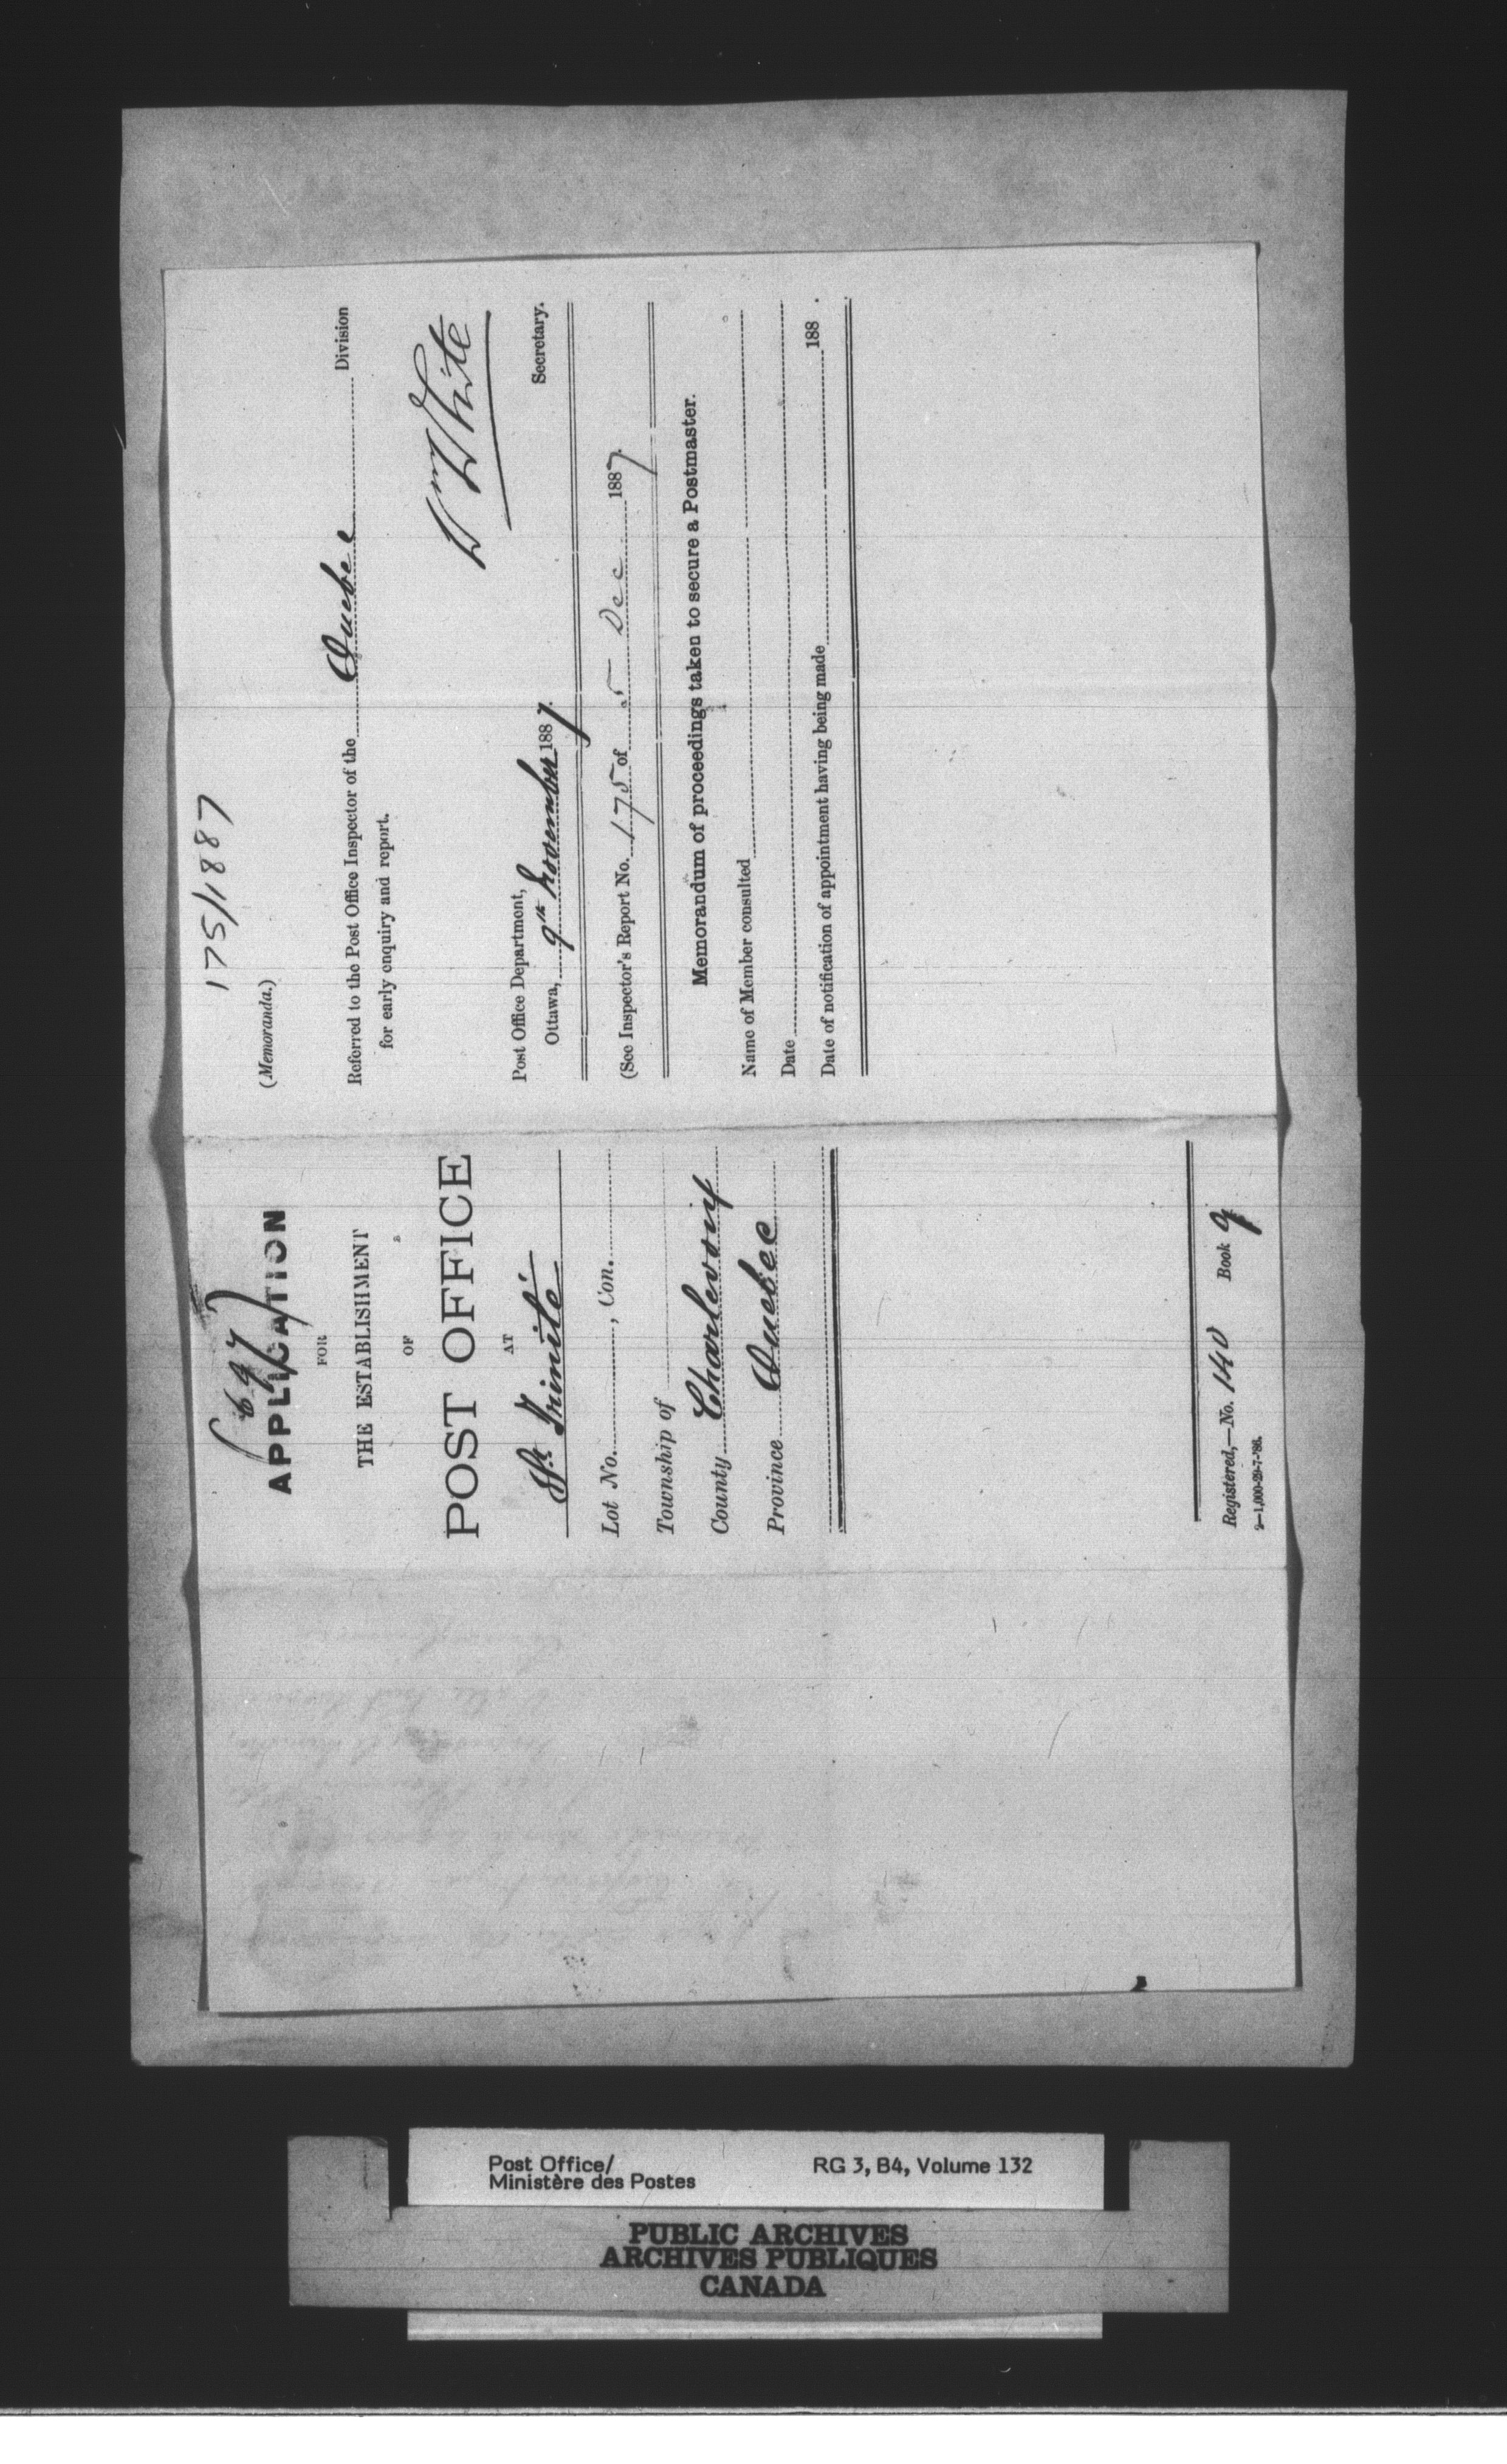 (647)
APPLICATION
FOR
THE ESTABLISHMENT
OF
POST OFFICE
AT
Ste. Trinité
Lot No. , Con.
Township of
County Charlevoix
Province Quebec
Registered,—No. 140 Book 9
2—1,000-29-7-'86.
175/1887
(Memoranda.)
Referred to the Post Office Inspector of the Quebec Division
for early enquiry and report.
Wm White
Secretary.
Post Office Department,
Ottawa, 9th November 1887.
(See Inspector's Report No. 175 of 5 Dec 1887.
Memorandum of proceedings taken to secure a Postmaster.
Name of Member consulted
Date
Date of notification of appointment having being made 188 .
Post Office/ RG 3, B4, Volume 132
Ministère des Postes
PUBLIC ARCHIVES
ARCHIVES PUBLIQUES
CANADA